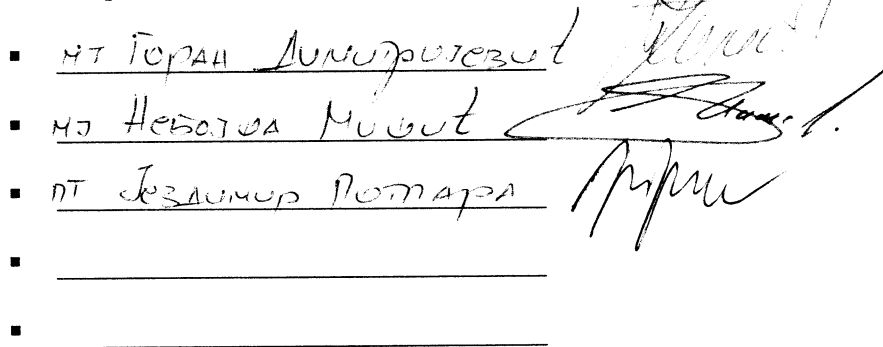 мт Горан Димитријевић
мј Небојша Мишић
пт Јездимир Потпара